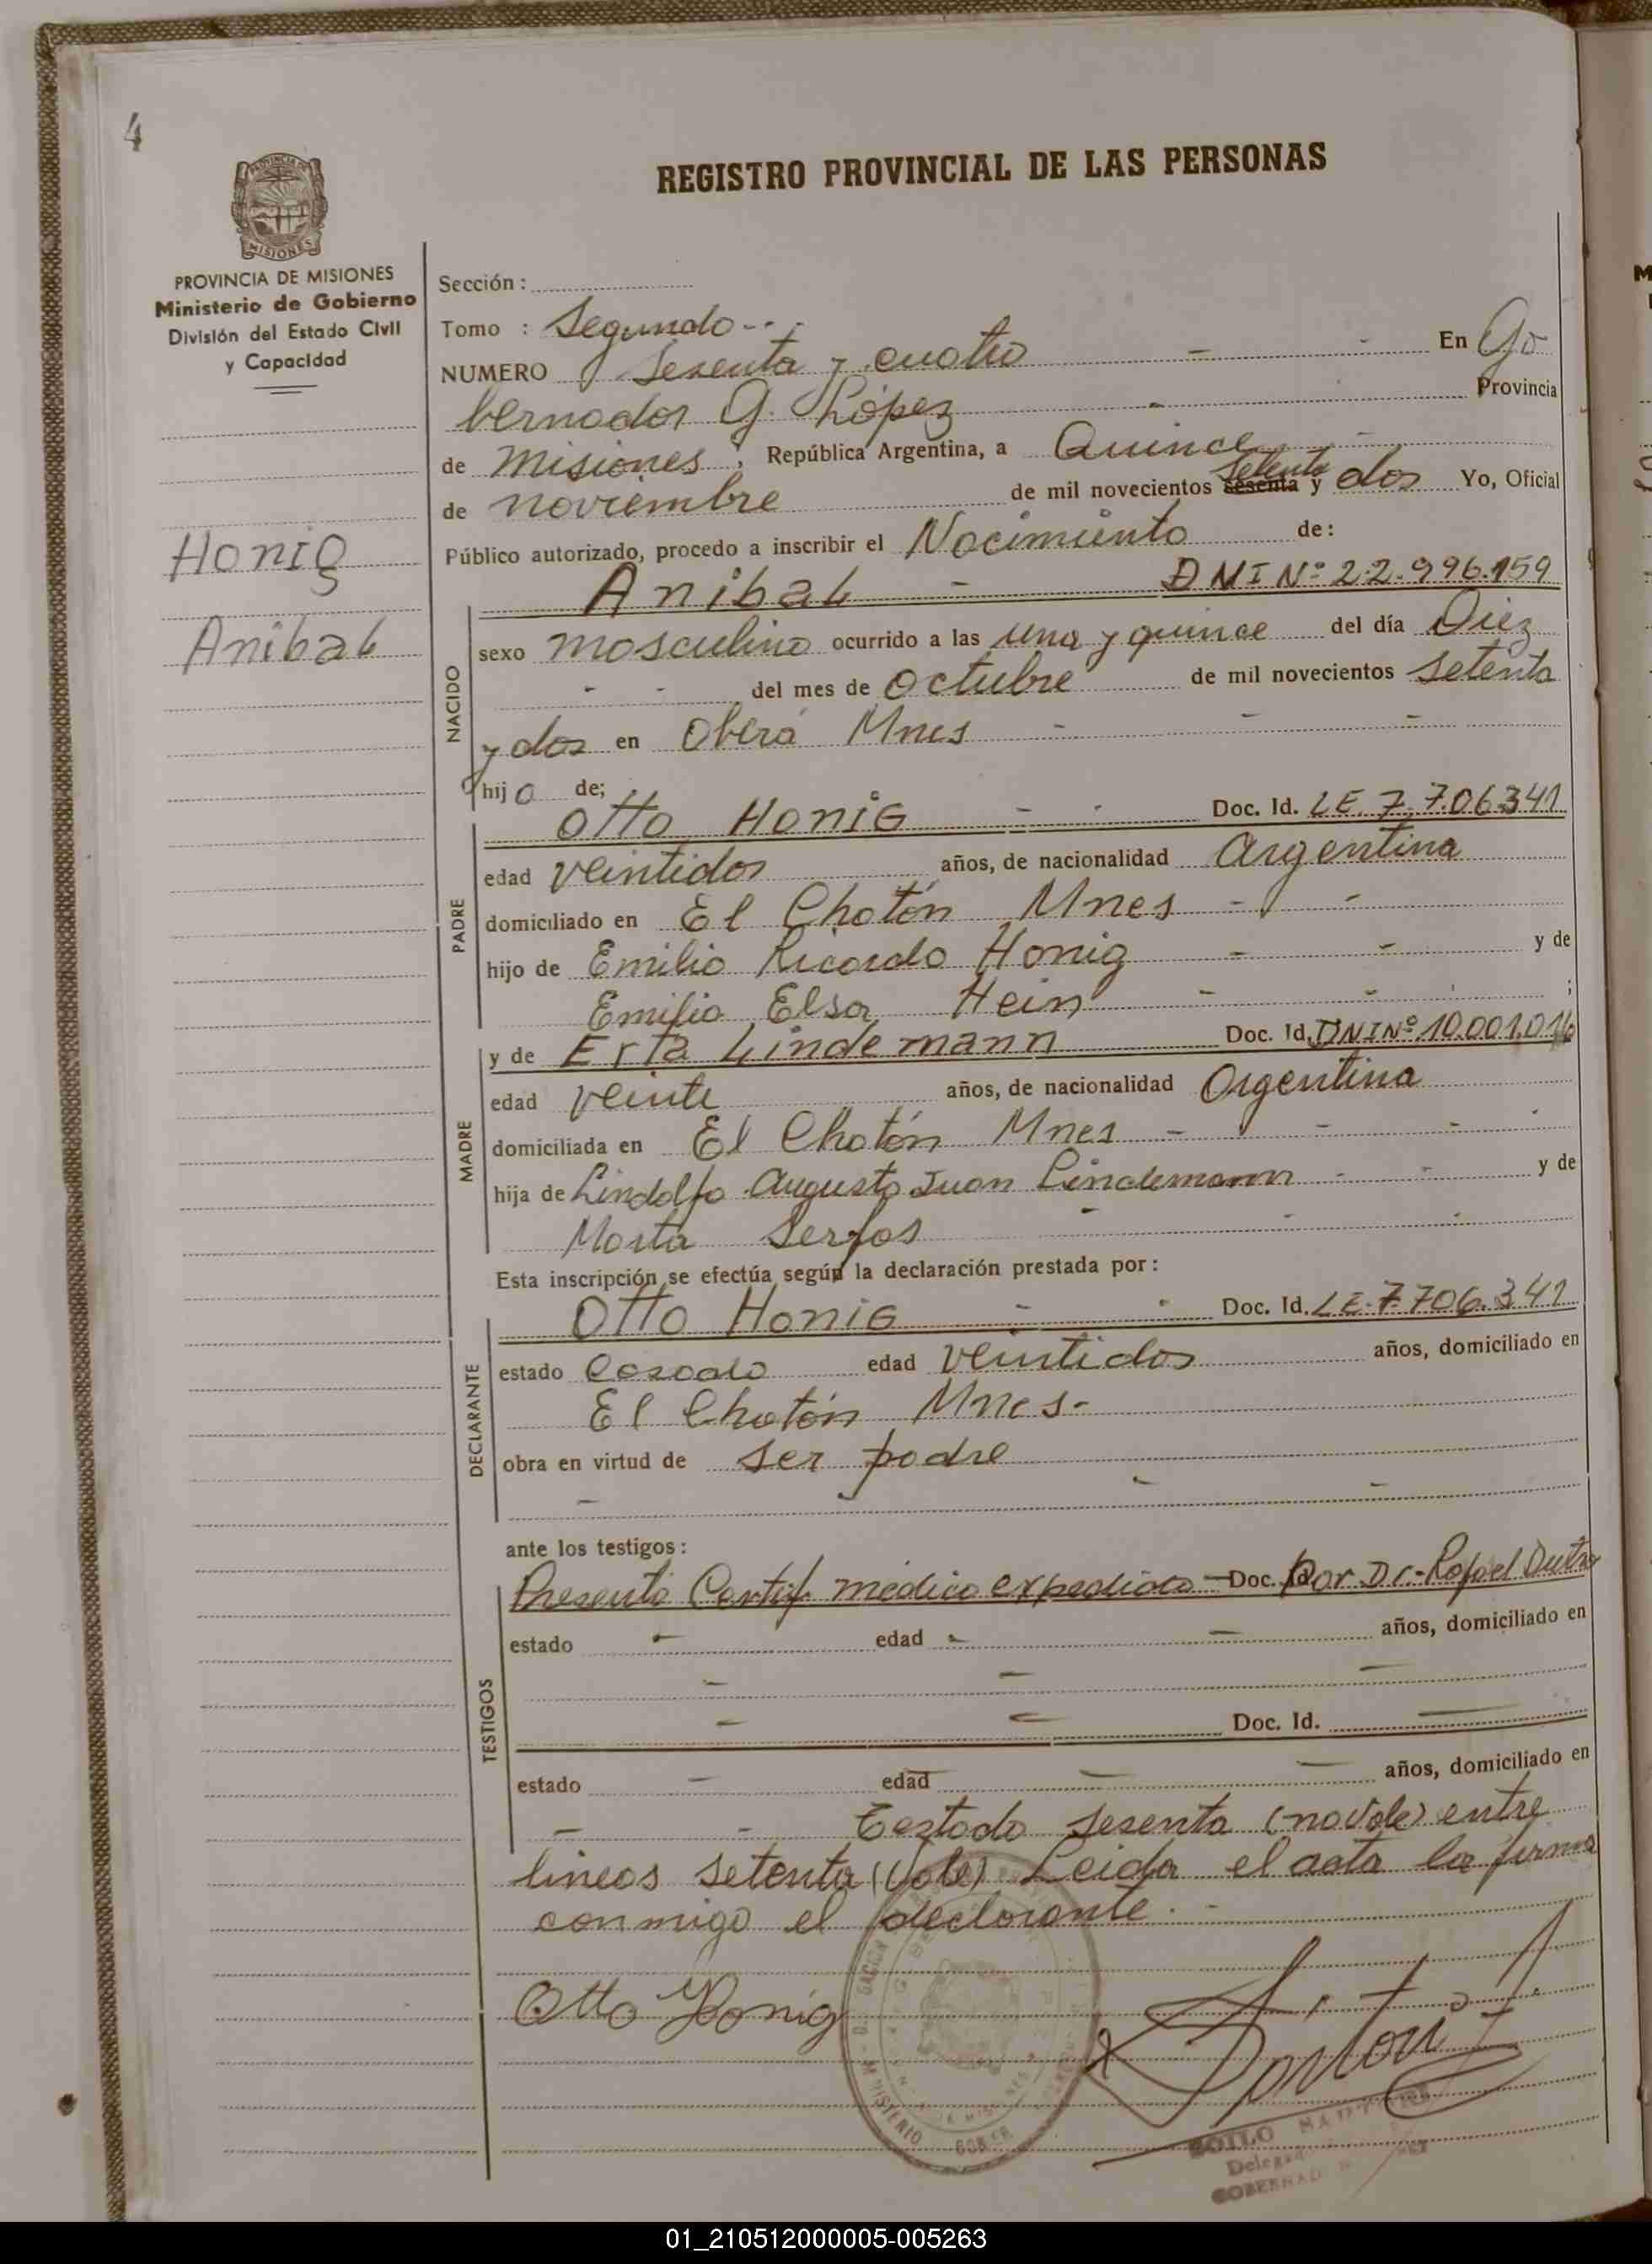 4
REGISTRO PROVINCIAL DE LAS PERSONAS
PROVINCIA DE MISIONES
Ministerio de Gobierno
División del Estado Civil
y Capacidad
Honig
Anibal
Sección :
Tomo : Segundo
NUMERO Sesenta y cuatro En Go
bernador G. López Provincia
de Misiones, República Argentina, a Quince
de noviembre de mil novecientos sesenta setenta y dos Yo, Oficial
Público autorizado, procedo a inscribir el Nacimiento de:
Anibal - DNI Nº 22.996.159
NACIDO
sexo masculino ocurrido a las una y quince del día Diez
del mes de octubre de mil novecientos setenta
y dos en Oberá Mnes
hijo de;
PADRE
Otto Honig Doc. Id. LE. 7.706.341
edad veintidos años, de nacionalidad argentina
domiciliado en El Chatón Mnes
hijo de Emilio Ricardo Honig y de
Emilia Elsa Hein ;
MADRE
y de Erta Lindemann Doc. Id. DNI Nº 10.001.016
edad veinte años, de nacionalidad argentina
domiciliada en El Chatón Mnes
hija de Lindolfo Augusto Juan Lindemann y de
Marta Serfas
Esta inscripción se efectúa según la declaración prestada por :
DECLARANTE
Otto Honig Doc. Id. LE. 7.706.341
estado casado edad veintidos años, domiciliado en
El Chatón Mnes-
obra en virtud de ser padre
ante los testigos :
TESTIGOS
Presenta Certif. médico expedido - Doc. Id por Dr. Rafael Dutra
estado - edad - años, domiciliado en
Doc. Id.
estado - edad - años, domiciliado en
Testado sesenta (no vale) entre
lineas setenta (vale) Leida el acta la firma
conmigo el declarante.
Otto Honig
MINISTERIO
Delega
GOBERNAD
01_210512000005-005263